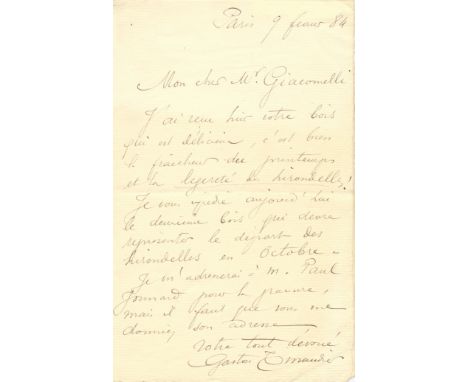 Paris 9 fevrier 84
Mon cher Mr. Giacomelli
J'ai reçu hier votre bois
qui est délicieux, c'est bien
la fraicheur du printemps
et la legereté de hirondelle!
Je vous expédie aujourd'hui
le deuxieme bois qui devra
représenter le départ des
hirondelles en Octobre.
Je m'adresserai à M. Paul
pour la gravure,
mais il faut que vous me
donniez son adresse
votre tout dévoué
Gaston